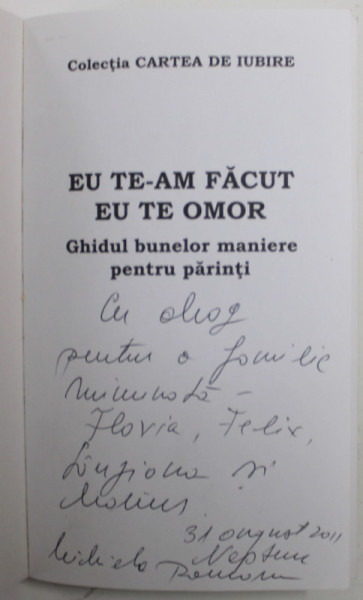 Colecția CARTEA DE IUBIRE
EU TE-AM FĂCUT
EU TE OMOR
Ghidul bunelor maniere
pentru părinți
Cu drag
pentru o familie
minunată –
Flavia, Felix,
și
Marius.
31 august 2011
Neptun